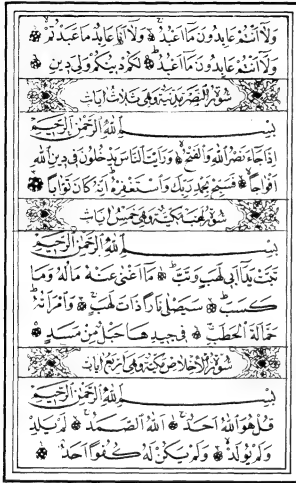 وَلَا أَنْتُمْ عَابِدُونَ مَا أَعْبُدُ ۞ وَلَا أَنَا عَابِدٌ مَا عَبَدْتُمْ ۞
وَلَا أَنْتُمْ عَابِدُونَ مَا أَعْبُدُ ۞ لَكُمْ دِينُكُمْ وَلِيَ دِينِ ۞
سُورَةُ النَّصْرِ مَدَنِيَّةٌ وَهِيَ ثَلَاثُ آيَاتٍ
بِسْمِ اللَّهِ الرَّحْمٰنِ الرَّحِيمِ
إِذَا جَاءَ نَصْرُ اللَّهِ وَالْفَتْحُ ۞ وَرَأَيْتَ النَّاسَ يَدْخُلُونَ فِي دِينِ اللَّهِ
أَفْوَاجًا ۞ فَسَبِّحْ بِحَمْدِ رَبِّكَ وَاسْتَغْفِرْهُ إِنَّهُ كَانَ تَوَّابًا ۞
سُورَةُ لَهَبٍ مَكِّيَّةٌ وَهِيَ خَمْسُ آيَاتٍ
بِسْمِ اللَّهِ الرَّحْمٰنِ الرَّحِيمِ
تَبَّتْ يَدَا أَبِي لَهَبٍ وَتَبَّ ۞ مَا أَغْنَى عَنْهُ مَالُهُ وَمَا
كَسَبَ ۞ سَيَصْلَى نَارًا ذَاتَ لَهَبٍ ۞ وَامْرَأَتُهُ
حَمَّالَةَ الْحَطَبِ ۞ فِي جِيدِهَا حَبْلٌ مِنْ مَسَدٍ ۞
سُورَةُ الْإِخْلَاصِ مَكِّيَّةٌ وَهِيَ أَرْبَعُ آيَاتٍ
بِسْمِ اللَّهِ الرَّحْمٰنِ الرَّحِيمِ
قُلْ هُوَ اللَّهُ أَحَدٌ ۞ اللَّهُ الصَّمَدُ ۞ لَمْ يَلِدْ
وَلَمْ يُولَدْ ۞ وَلَمْ يَكُنْ لَهُ كُفُوًا أَحَدٌ ۞